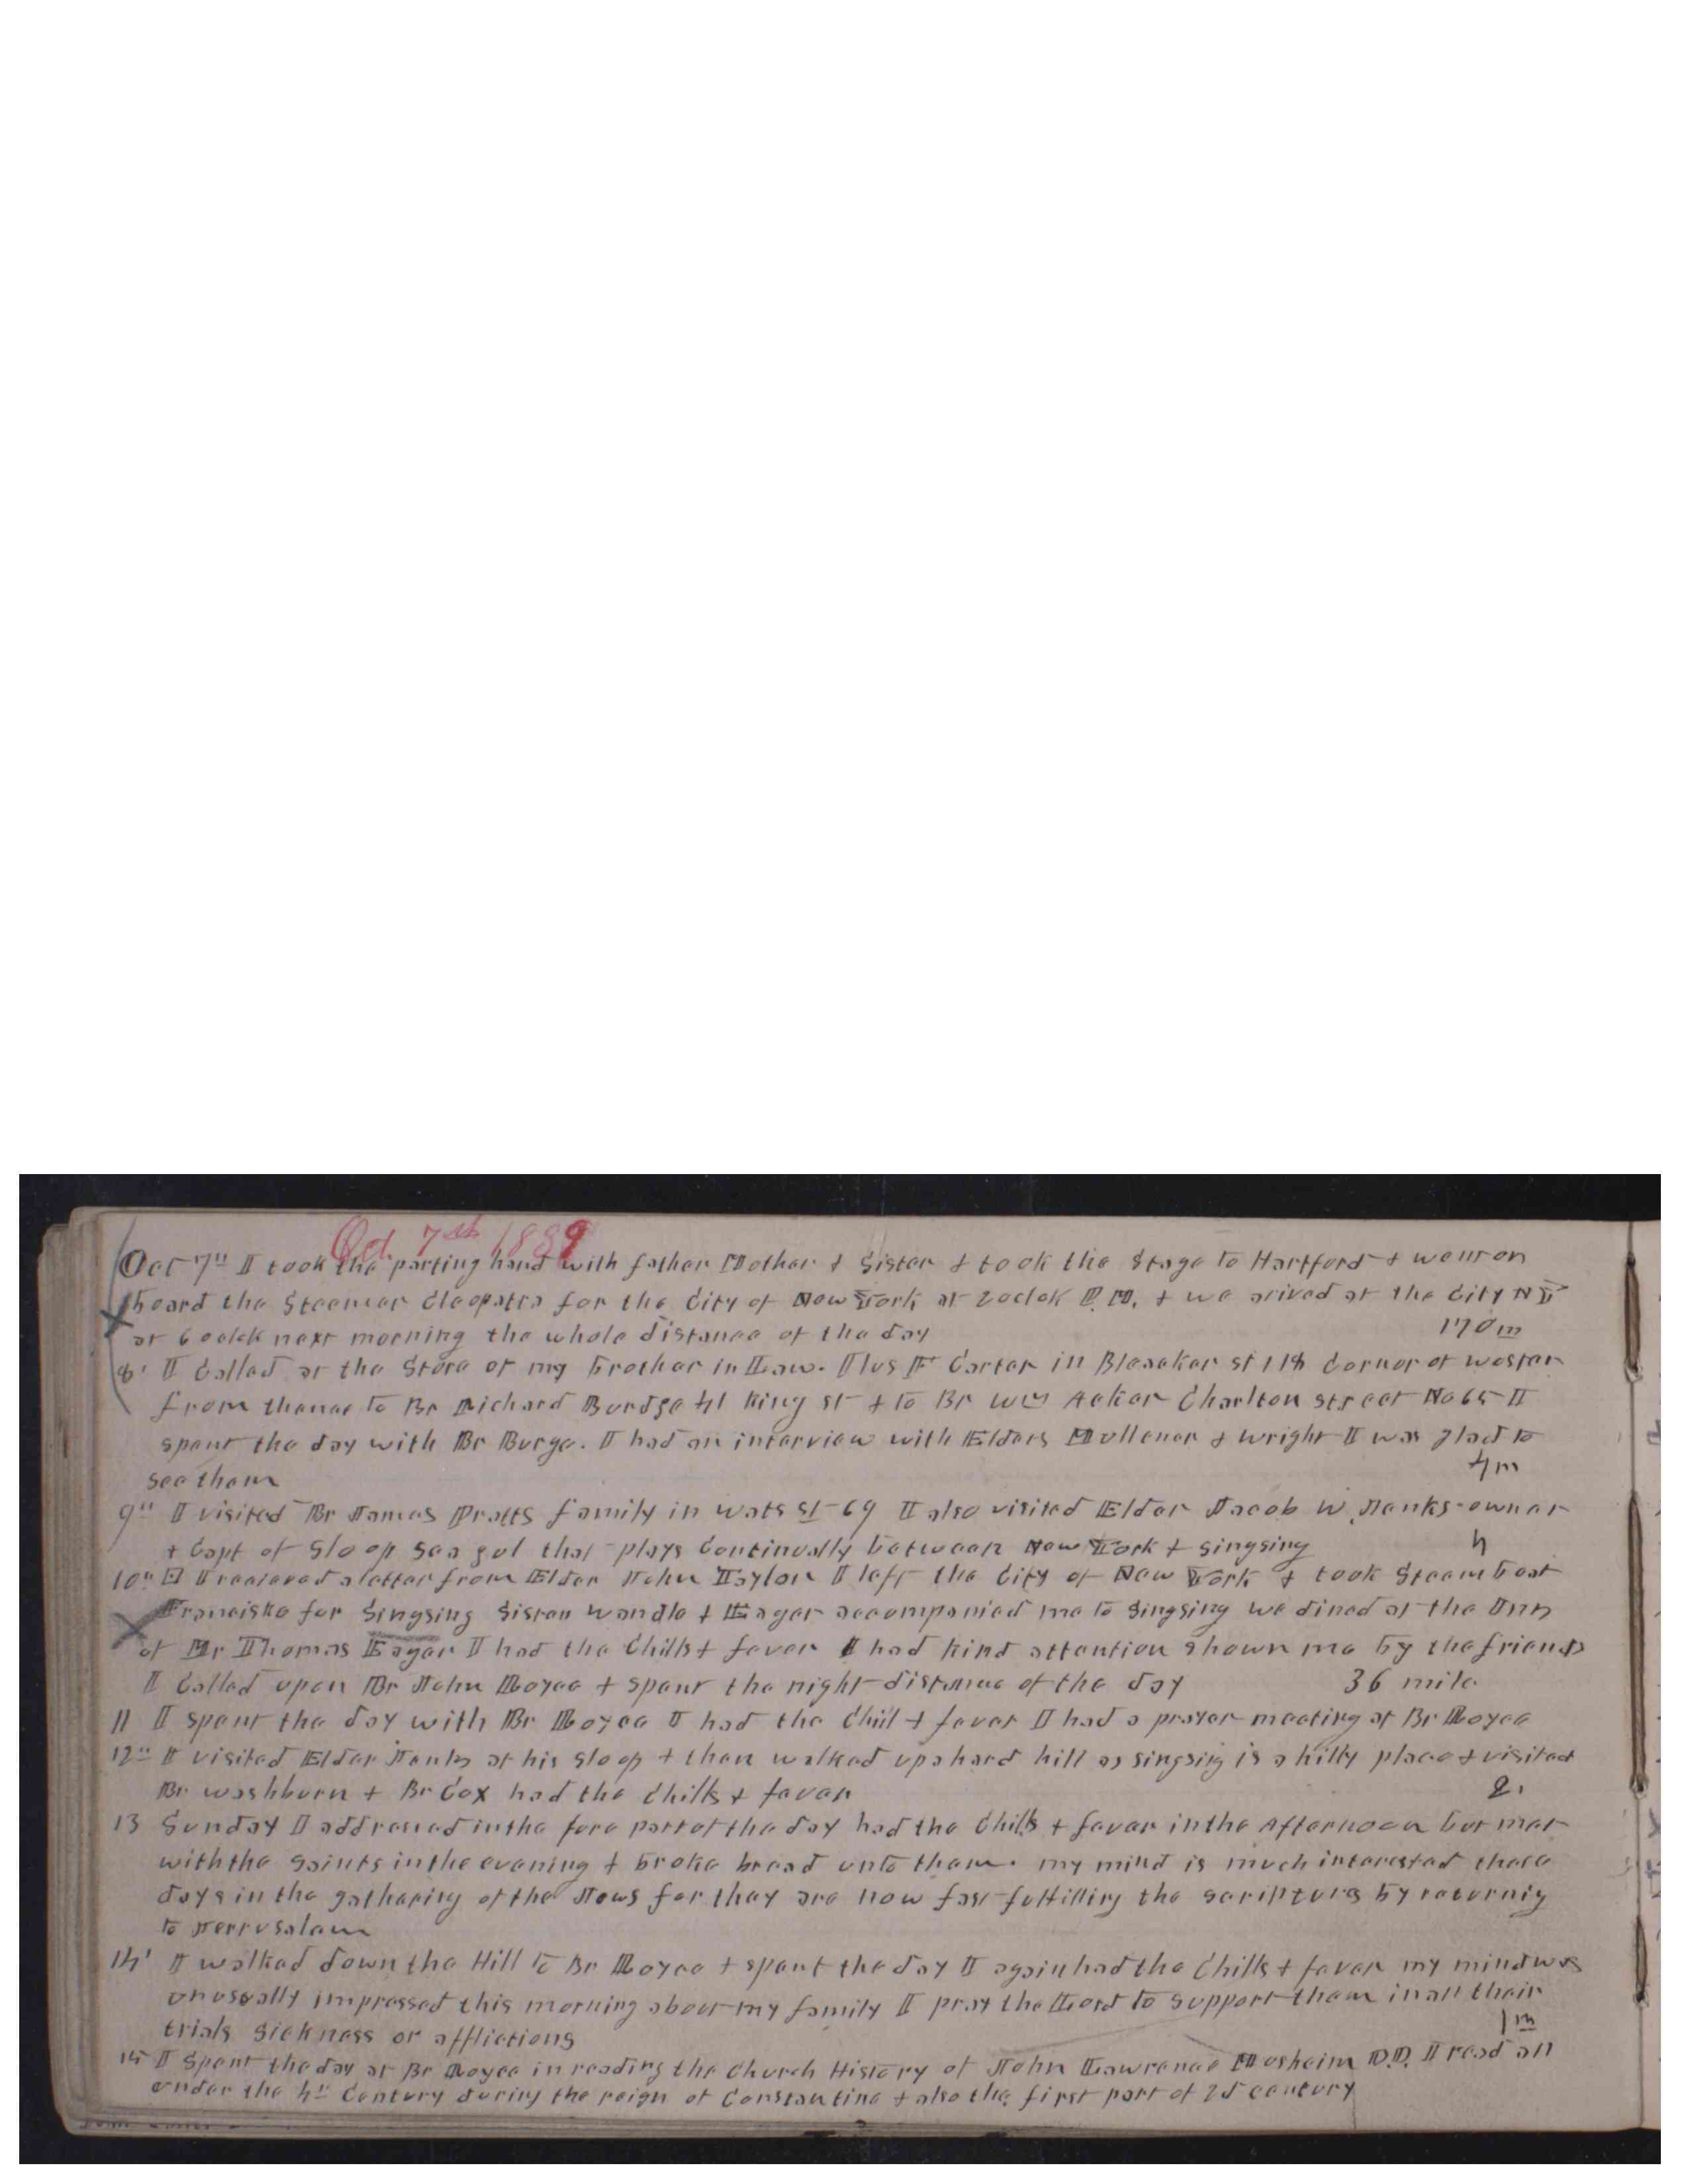 Oct. 7th 1839
Oct 7th I took the parting hand with father Mother & Sister & took the Stage to Hartford & went on
board the Steemer Cleopatra for the City of New York at 2 oclok P.M. & we arived at the City NY
at 6 oclck next morning the whole distance of the day 170 m
8' I Called at the Store of my brother in Law. Ilus F Carter in Bleaeker st 118 Corner of wester
from thence to Br Richard Burdge 41 King st & to Br Wm Acker Charlton street No 65 I
spent the day with Br Burge. I had an interview with Elders Mullener & Wright I was glad to
see them 4 m
9th I visited Br James Pratts family in wats st 69 I also visited Elder Jacob W. Jenks owner
& Capt of Sloop Sea gul that plays Continually between New York & Singsing 4
10th I recieved a letter from Elder John Taylor I left the City of New York & took Steem boat
Francisko for Singsing Sisters Wandle & Eager accompanied me to Singsing we dined at the Inn
of Mr Thomas Eager I had the Chills & fever I had kind attention shown me by the friends
I Called upon Br John Royce & spent the night distance of the day 36 mile
11 I spent the day with Br Royce I had the Chill & fever I had a prayer meeting at Br Royce
12th I visited Elder Jenks at his sloop & then walked up a hard hill as singsing is a hilly place & visited
Br Washburn & Br Cox had the Chills & fever 2.
13 Sunday I addressed in the fore part of the day had the Chills & fever in the Afternoon but met
with the Saints in the evening & broke bread unto them. my mind is much interested these
days in the gathering of the Jews for they are now fast fulfilling the scriptures by returnig
to Jerrusalem
14' I walked down the Hill to Br Royce & spent the day I again had the Chills & fever my mind was
unusually impressed this morning about my family I pray the Lord to support them in all their
trials sickness or afflictions 1 m
15 I Spent the day at Br Royce in reading the Church History of John Lawrence Mosheim D.D. I read all
under the 4th Century during the reign of Constantine & also the first part of 2d century